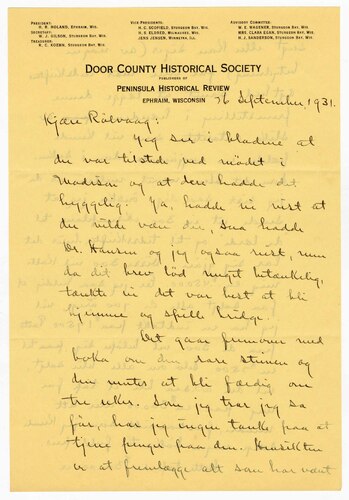 PRESIDENT:
H. R. HOLAND, EPHRAIM, WIS.
SECRETARY:
W. J. GILSON, STURGEON BAY, WIS.
TREASURER:
R. C. KOEMN, STURGEON BAY, WIS.
VICE-PRESIDENTS:
H. C. SCOFIELD, STURGEON BAY, WIS.
H. S. ELDRED, MILWAUKEE, WIS.
JENS JENSEN, WINNETKA, ILL.
ADVISORY COMMITTEE:
W. E. WAGENER, STURGEON BAY, WIS.
MRS. CLARA EGAN, STURGEON BAY, WIS.
H. J. SANDERSON, STURGEON BAY, WIS.
DOOR COUNTY HISTORICAL SOCIETY
PUBLISHERS OF
PENINSULA HISTORICAL REVIEW
EPHRAIM, WISCONSIN
26 September 1931.
Kjære Rölvaag:
Jeg ser i bladene at
du var tilstede ved mödet i
Madison og at dere hadde det
hyggelig. Ja, hadde vi vist at
du vilde være der, saa hadde
Dr. Hansen og jeg ogsaa reist, men
da dit brev löd meget betænkelig,
tænkte vi det var best at bli
hjemme og spille bridge.
Det gaar fremover med
boka om den rare stenen og
den ventes at bli færdig om
tre uker. Som jeg tror jeg sa
för, har jeg ingen tanke paa at
tjene penger paa den. Hensikten
er at fremlægge alt som har været